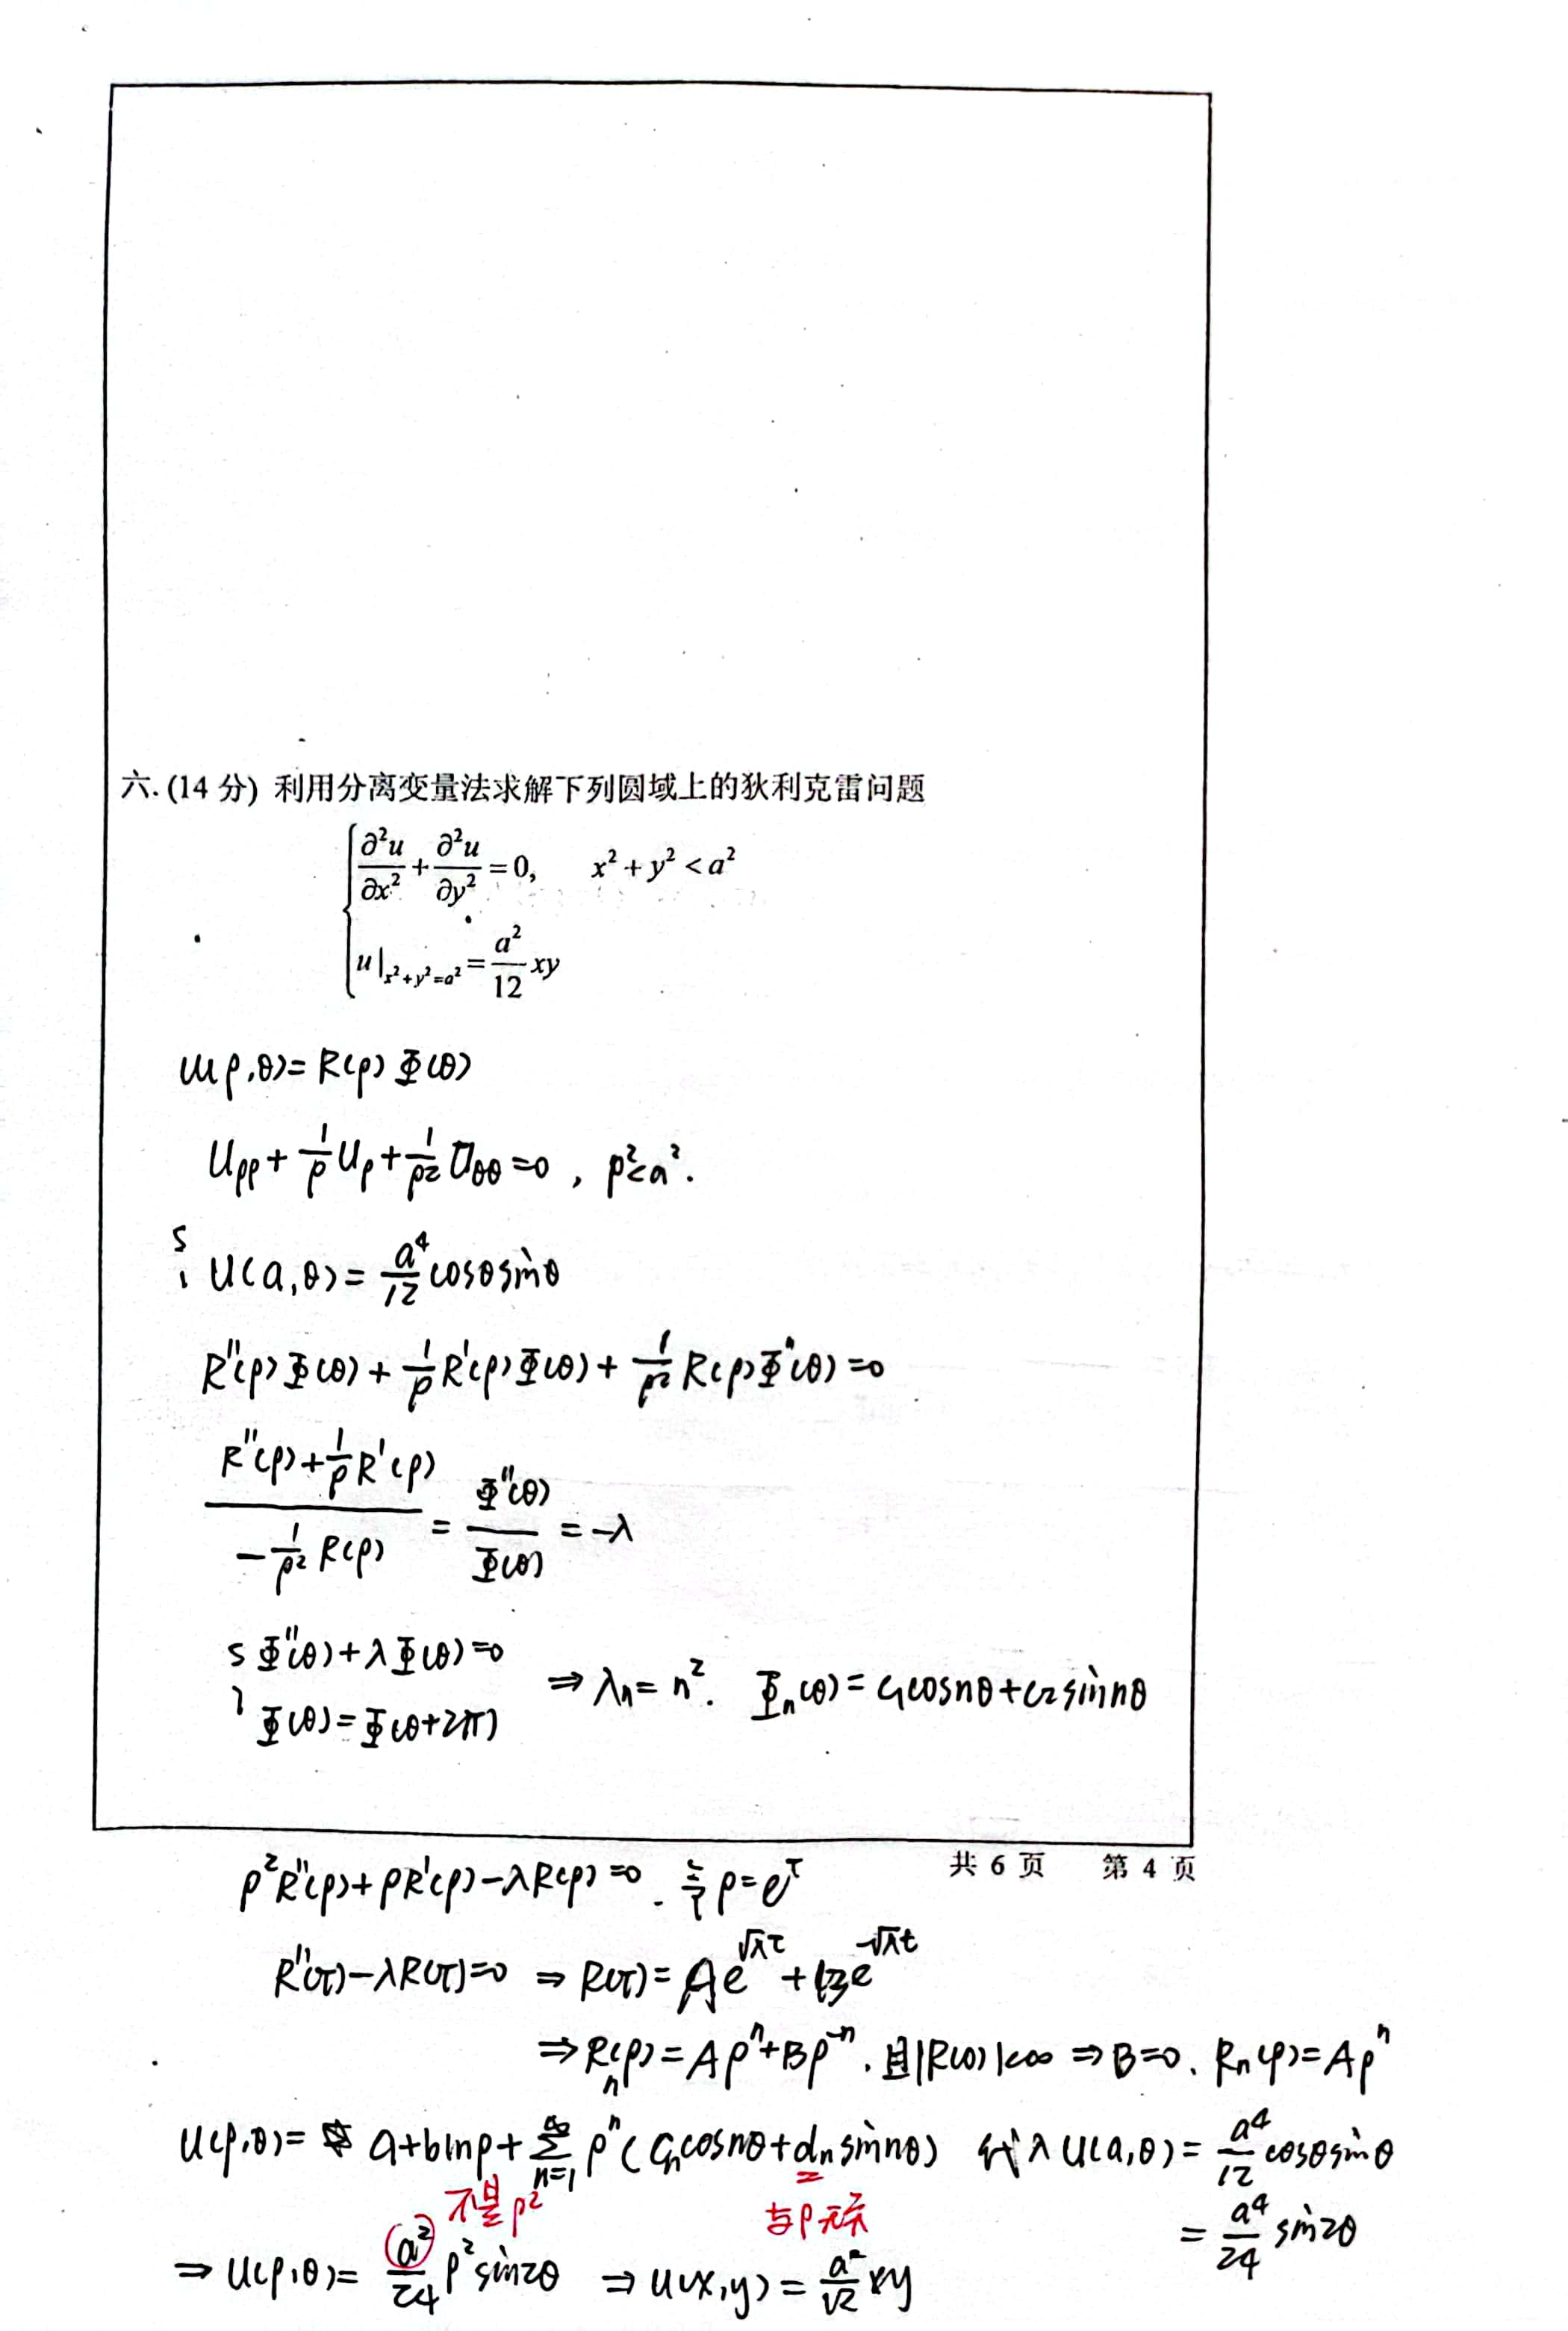 六.(14分) 利用分离变量法求解下列圆域上的狄利克雷问题
∂²u/∂x² + ∂²u/∂y² = 0, x² + y² < a²
u|ₓ²₊ᵧ²₌ₐ² = a²/12 xy
u(ρ,θ)=R(ρ)Φ(θ)
Uρρ + 1/ρ Uρ + 1/ρ² Uθθ = 0, ρ²<a².
U(a,θ) = a⁴/12 cosθsinθ
R''(ρ)Φ(θ) + 1/ρ R'(ρ)Φ(θ) + 1/ρ² R(ρ)Φ''(θ) = 0
(R''(ρ) + 1/ρ R'(ρ)) / (-1/ρ² R(ρ)) = Φ''(θ)/Φ(θ) = -λ
Φ''(θ)+λΦ(θ)=0
Φ(θ)=Φ(θ+2π) ⇒ λn = n². Φn(θ) = c₁cosnθ + c₂sinnθ
共 6 页 第 4 页
ρ²R''(ρ)+ρR'(ρ)-λR(ρ)=0. 令ρ=e^τ
R''(τ)-λR(τ)=0 ⇒ R(τ) = Ae^(√λτ) + Be^(-√λt)
⇒ Rn(ρ) = Aρⁿ+Bρ⁻ⁿ, 且|R(0)|<∞ ⇒ B=0. Rn(ρ)=Aρⁿ
U(ρ,θ) = a+blnρ+∑ₙ₌₁^∞ ρⁿ(cncosnθ+dnsinnθ) 代入U(a,θ) = a⁴/12 cosθsinθ
不是ρ² 与ρ无关
= a⁴/24 sin2θ
⇒ U(ρ,θ) = a²/24 ρ²sin2θ ⇒ u(x,y) = a²/12 xy